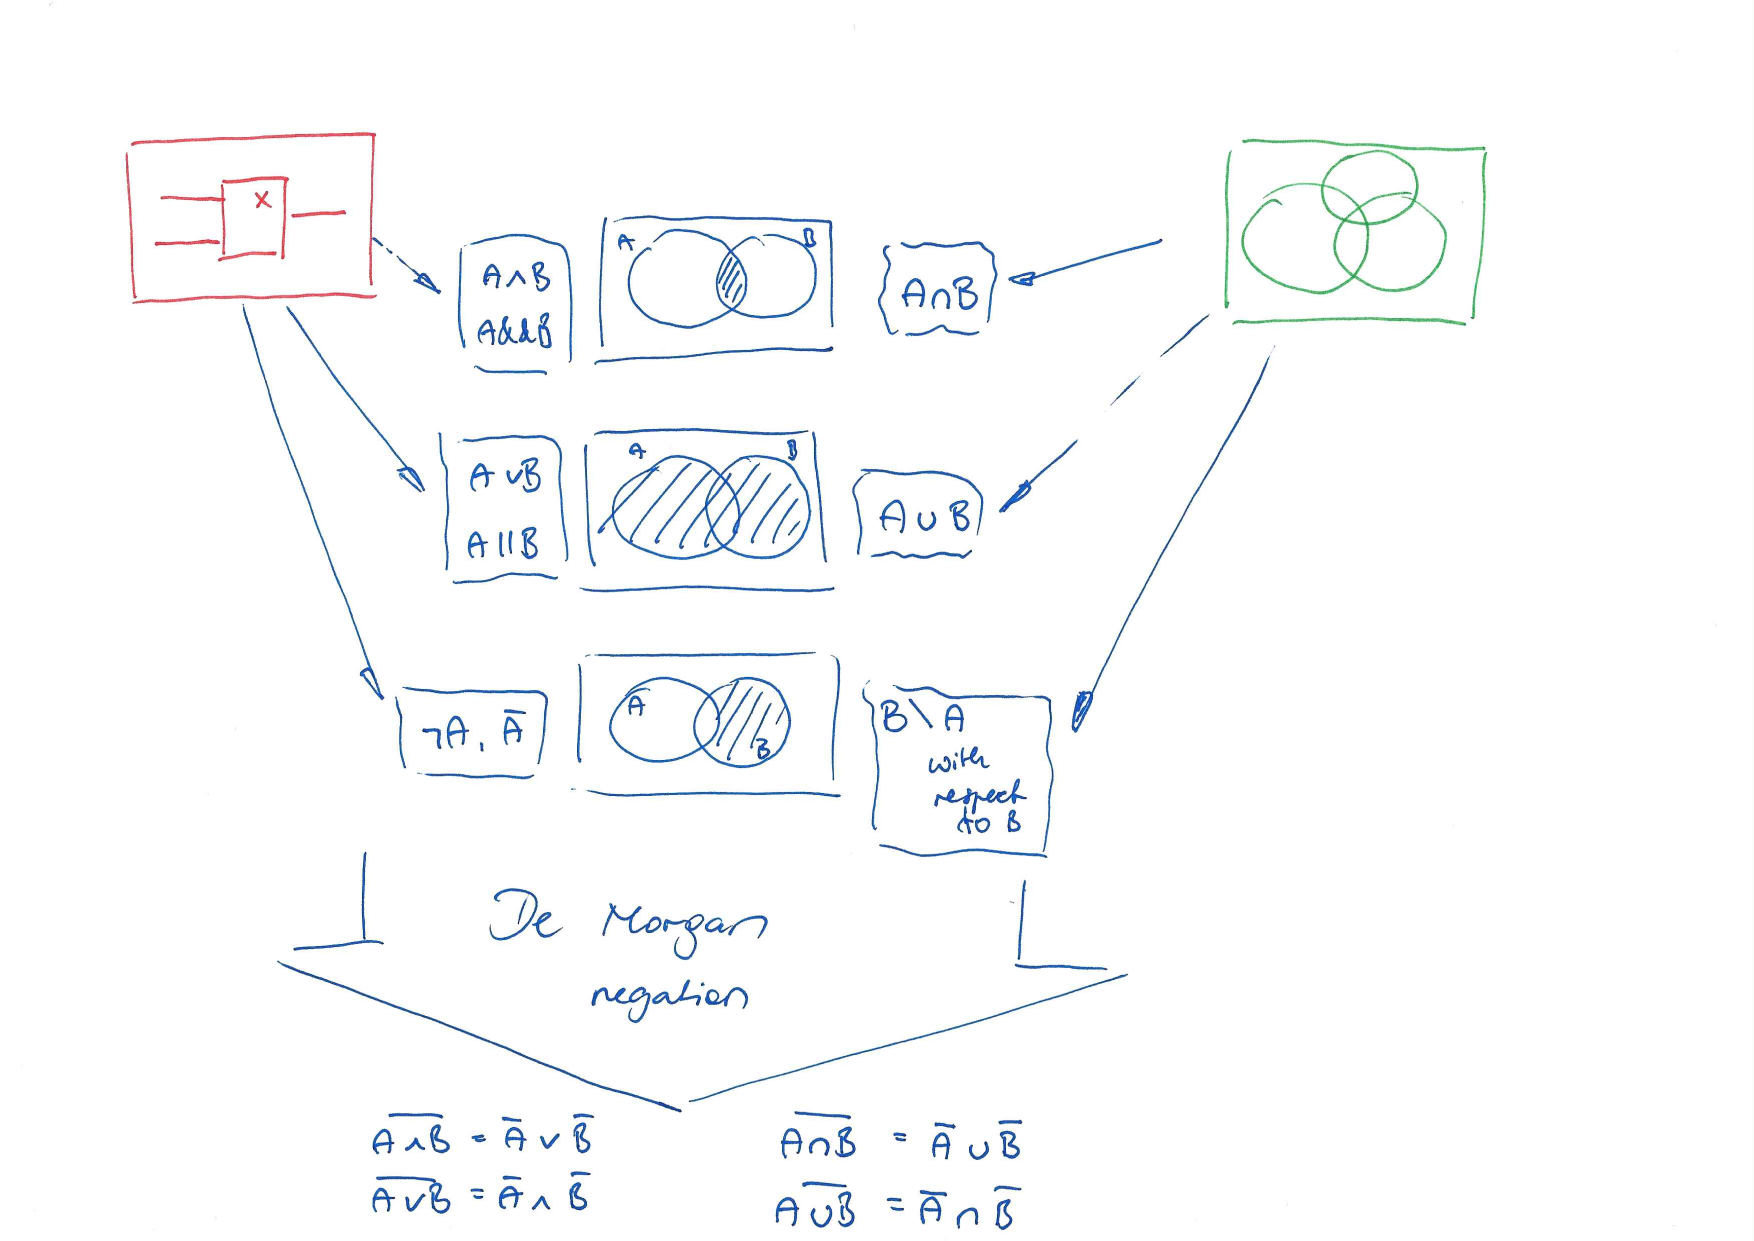 X
A∧B
A&&B
A
B
A∩B
A∨B
A||B
A
B
A∪B
¬A, A̅
A
B
B\A
with
respect
to B
De Morgan
negation
A̅∧̅B̅ = A̅ ∨ B̅
A̅∨̅B̅ = A̅ ∧ B̅
A̅∩̅B̅ = A̅ ∪ B̅
A̅∪̅B̅ = A̅ ∩ B̅